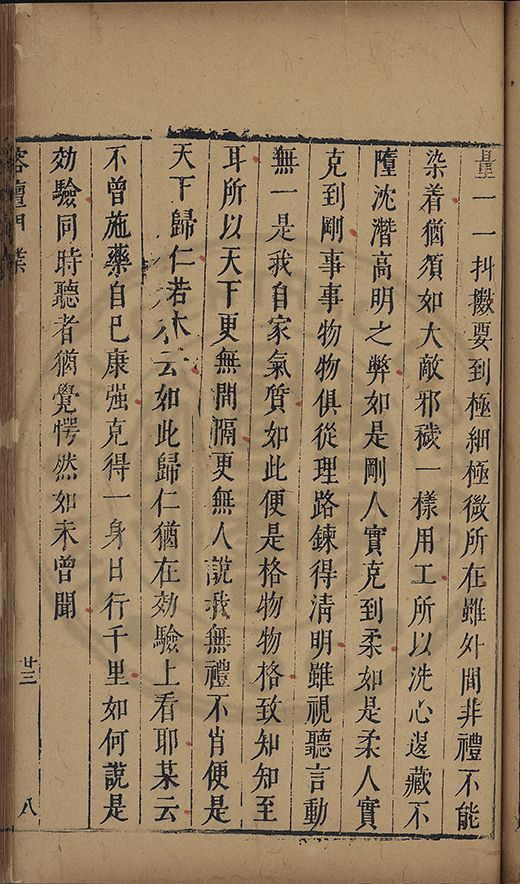 量一一抖擻要到極細極微所在雖外間非禮不能
染着猶須如大敵邪穢一樣用工所以洗心退藏不
墮沈潛高明之弊如是剛人實克到柔如是柔人實
克到剛事事物物俱從理路鍊得清明雖視聽言動
無一是我自家氣質如此便是格物物格致知知至
耳所以天下更無間隔更無人說我無禮不肖便是
天下歸仁若云如此歸仁猶在効驗上看耶某云
不曾施藥自巳康強克得一身日行千里如何說是
効驗同時聽者猶覺愕然如未曾聞
榕壇問業
廿三
八